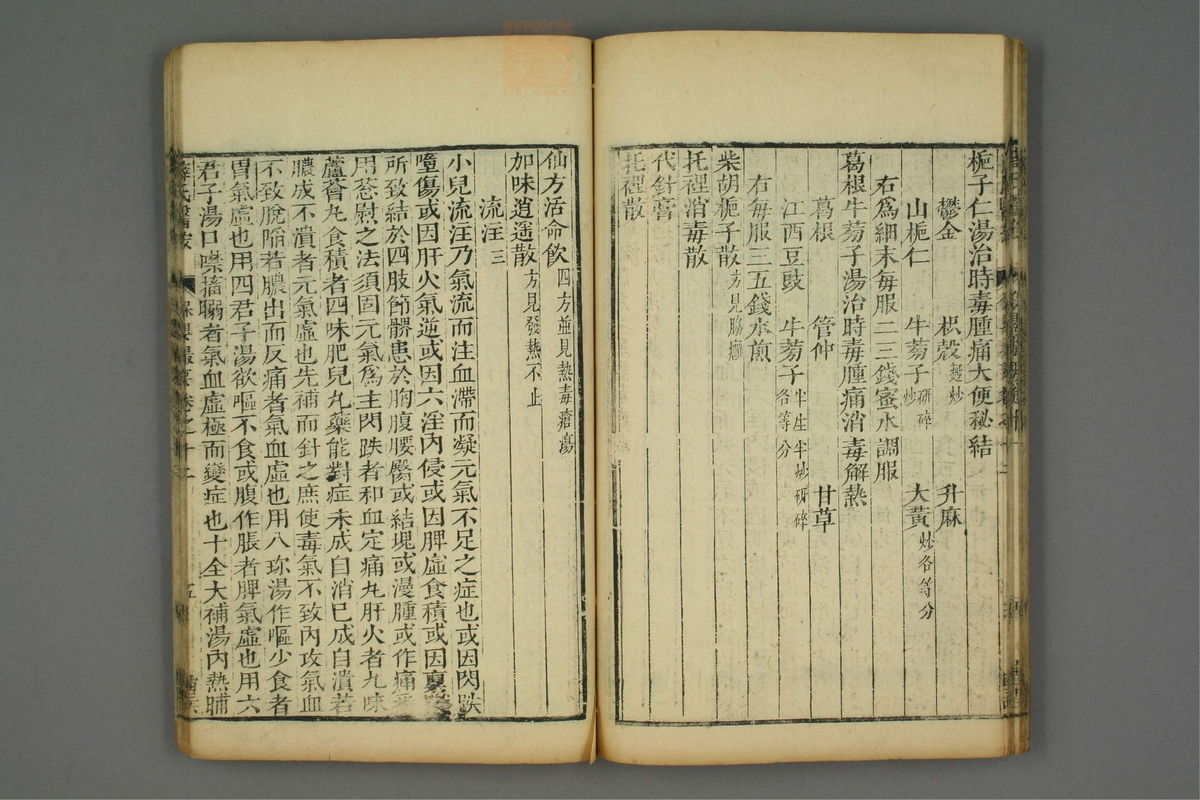 梔子仁湯治時毒腫痛大便秘結
鬱金 枳殼麩炒 升麻
山梔仁 牛蒡子研碎炒 大黃炒各等分
右為細末每服二三錢蜜水調服
葛根牛蒡子湯治時毒腫痛消毒解熱
葛根 管仲 甘草
江西豆豉 牛蒡子半生半炒研碎各等分
右每服三五錢水煎
柴胡梔子散方見腦癰
托裡消毒散
代針膏
托裡散
仙方活命飲四方並見熱毒瘡瘍
加味逍遥散方見發熱不止
流注三
小兒流注乃氣流而注血滯而凝元氣不足之症也或因閃跌
墮傷或因肝火氣逆或因六淫內侵或因脾虛食積或因
所致結於四肢節髎患於胸腹腰臀或結塊或漫腫或作痛悉
用葱熨之法須固元氣為主閃跌者和血定痛丸肝火者九味
蘆薈丸食積者四味肥兒丸藥能對症未成自消已成自潰若
膿成不潰者元氣虛也先補而針之庶使毒氣不致內攻氣血
不致脫陥若膿出而反痛者氣血虛也用八珍湯作嘔少食者
胃氣虛也用四君子湯欲嘔不食或腹作脹者脾氣虛也用六
君子湯口噤搐搦者氣血虛極而變症也十全大補湯內熱晡
薛氏醫按 保嬰撮要卷之十二 五